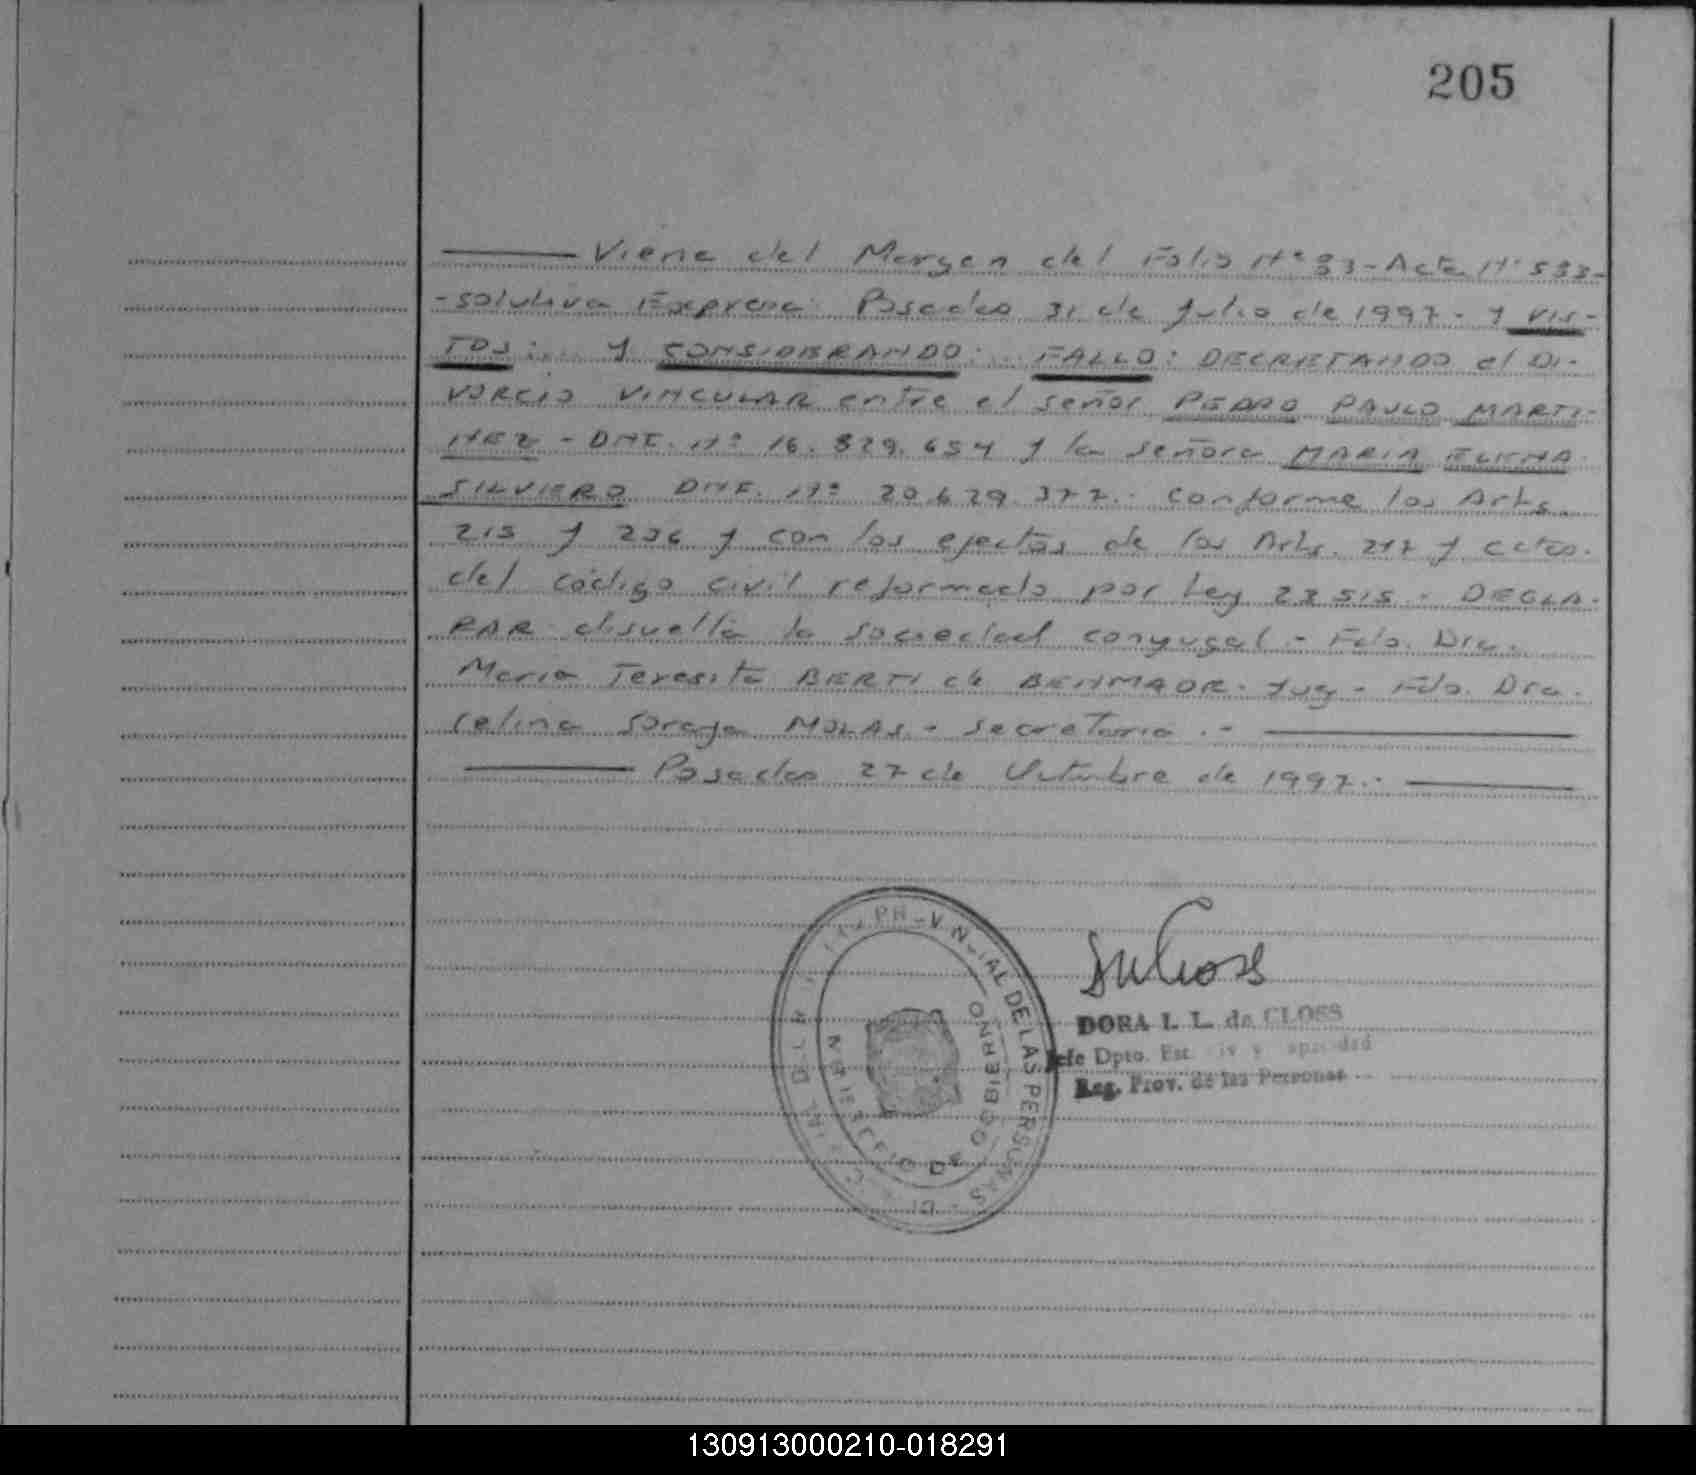 205
Viene del Margen del Folio Nº 93-Acta Nº 533-
-solutiva Expresa: Posadas 31 de Julio de 1997.- Y VIS-
TOS: Y CONSIDERANDO: FALLO: DECRETANDO el DI-
VORCIO VINCULAR entre el señor PEDRO PAULO MARTI-
NEZ - DNI. Nº 16.829.654 y la señora MARIA ELENA
SILVIERO DNI. Nº 20.629.377.- conforme los Arts.
215 y 236 y con los efectos de los Arts. 217 y cctes.
del código civil reformado por Ley 23515.- DECLA-
RAR disuelta la sociedad conyugal.- Fdo. Dra.
Maria Teresita BERTI de BENMAOR. Juez - Fdo. Dra.
Celina Soraya MOLAS.- Secretaria.-
Posadas 27 de Octubre de 1997.-
PROVINCIAL DE LAS PERSONAS
MINISTERIO DE GOBIERNO
DORA I. L. de CLOSS
Jefe Dpto. Est. Civ y Capacidad
Reg. Prov. de las Personas
130913000210-018291